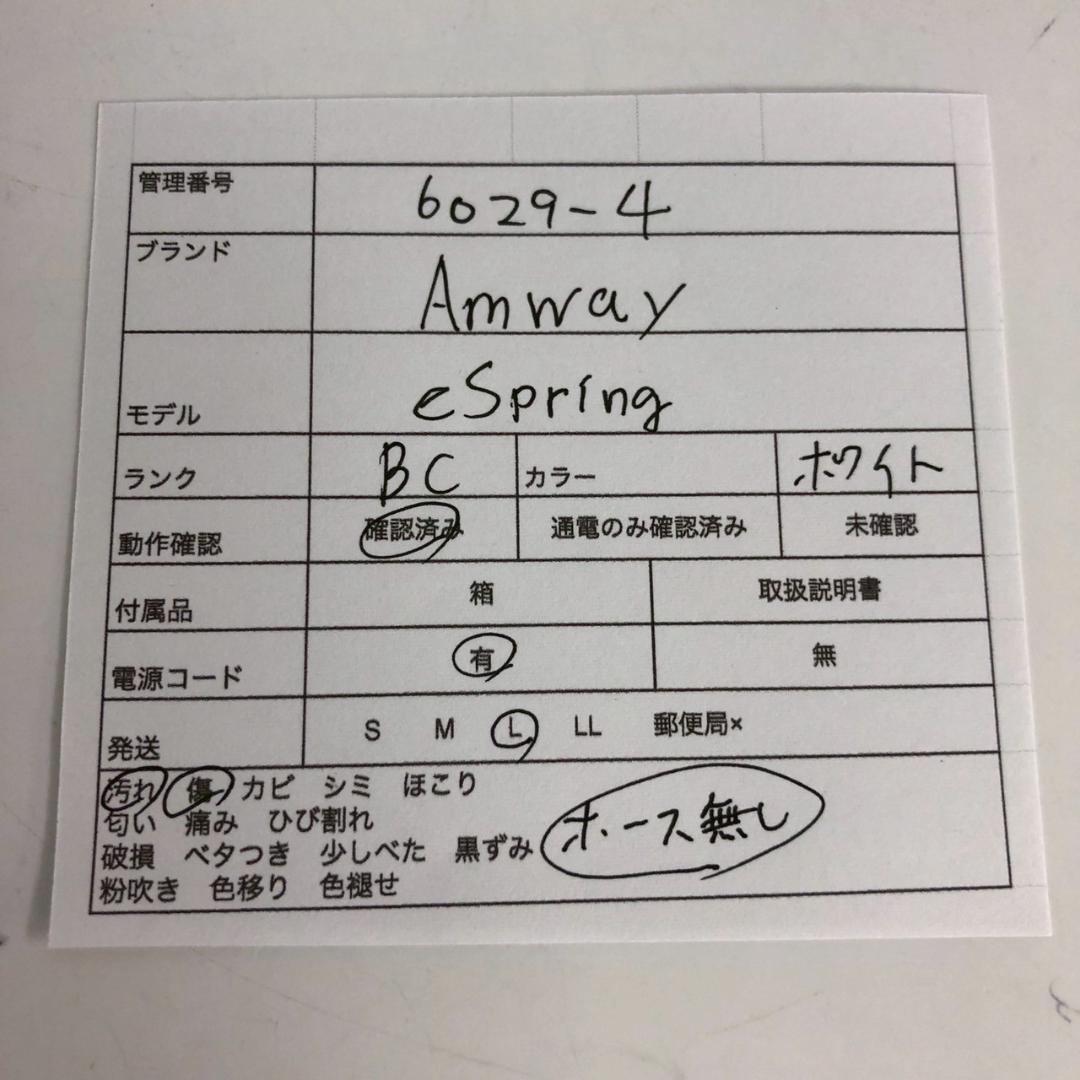 管理番号 6029-4
ブランド Amway
モデル eSpring
ランク BC カラー ホワイト
動作確認 確認済み 通電のみ確認済み 未確認
付属品 箱 取扱説明書
電源コード 有 無
発送 S M L LL 郵便局×
汚れ 傷 カビ シミ ほこり
匂い 痛み ひび割れ
破損 ベタつき 少しべた 黒ずみ
粉吹き 色移り 色褪せ
ホース無し